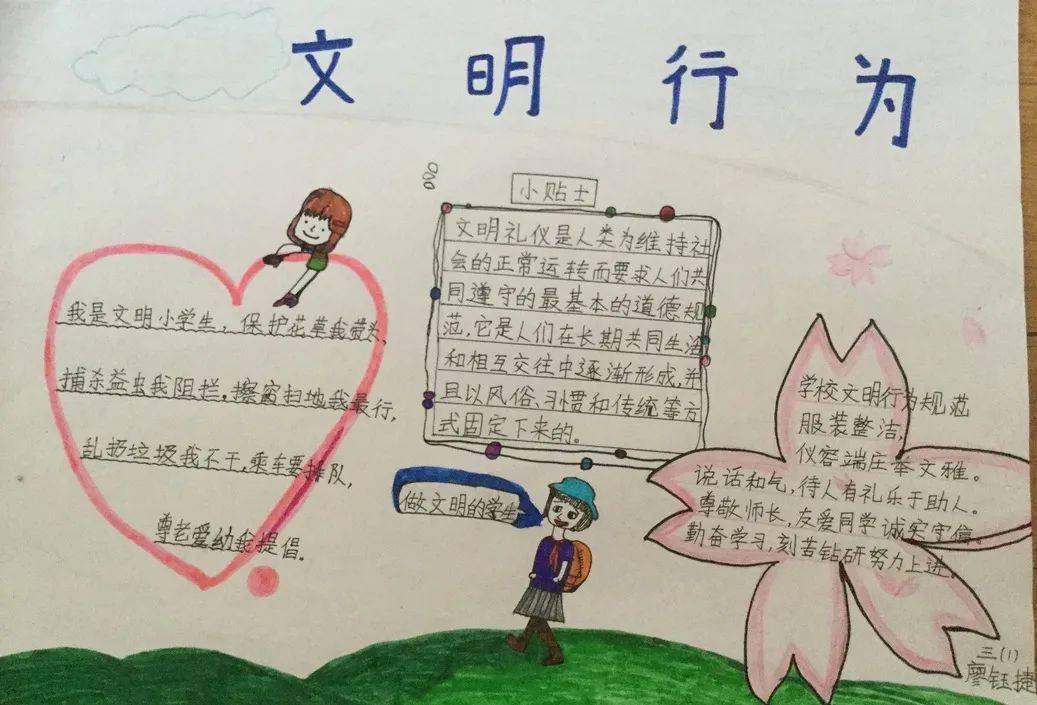 文明行为
我是文明小学生，保护花草我带头，
捕杀益虫我阻拦。擦窗扫地我最行，
乱扔垃圾我不干，乘车要排队，
尊老爱幼我提倡。
小贴士
文明礼仪是人类为维持社
会的正常运转而要求人们共
同遵守的最基本的道德规
范，它是人们在长期共同生活
和相互交往中逐渐形成，并
且以风俗、习惯和传统等方
式固定下来的。
做文明的学生
学校文明行为规范
服装整洁，
仪容端庄举文雅。
说话和气，待人有礼乐于助人。
尊敬师长，友爱同学诚实守信。
勤奋学习，刻苦钻研努力上进。
三（1）
廖钰捷